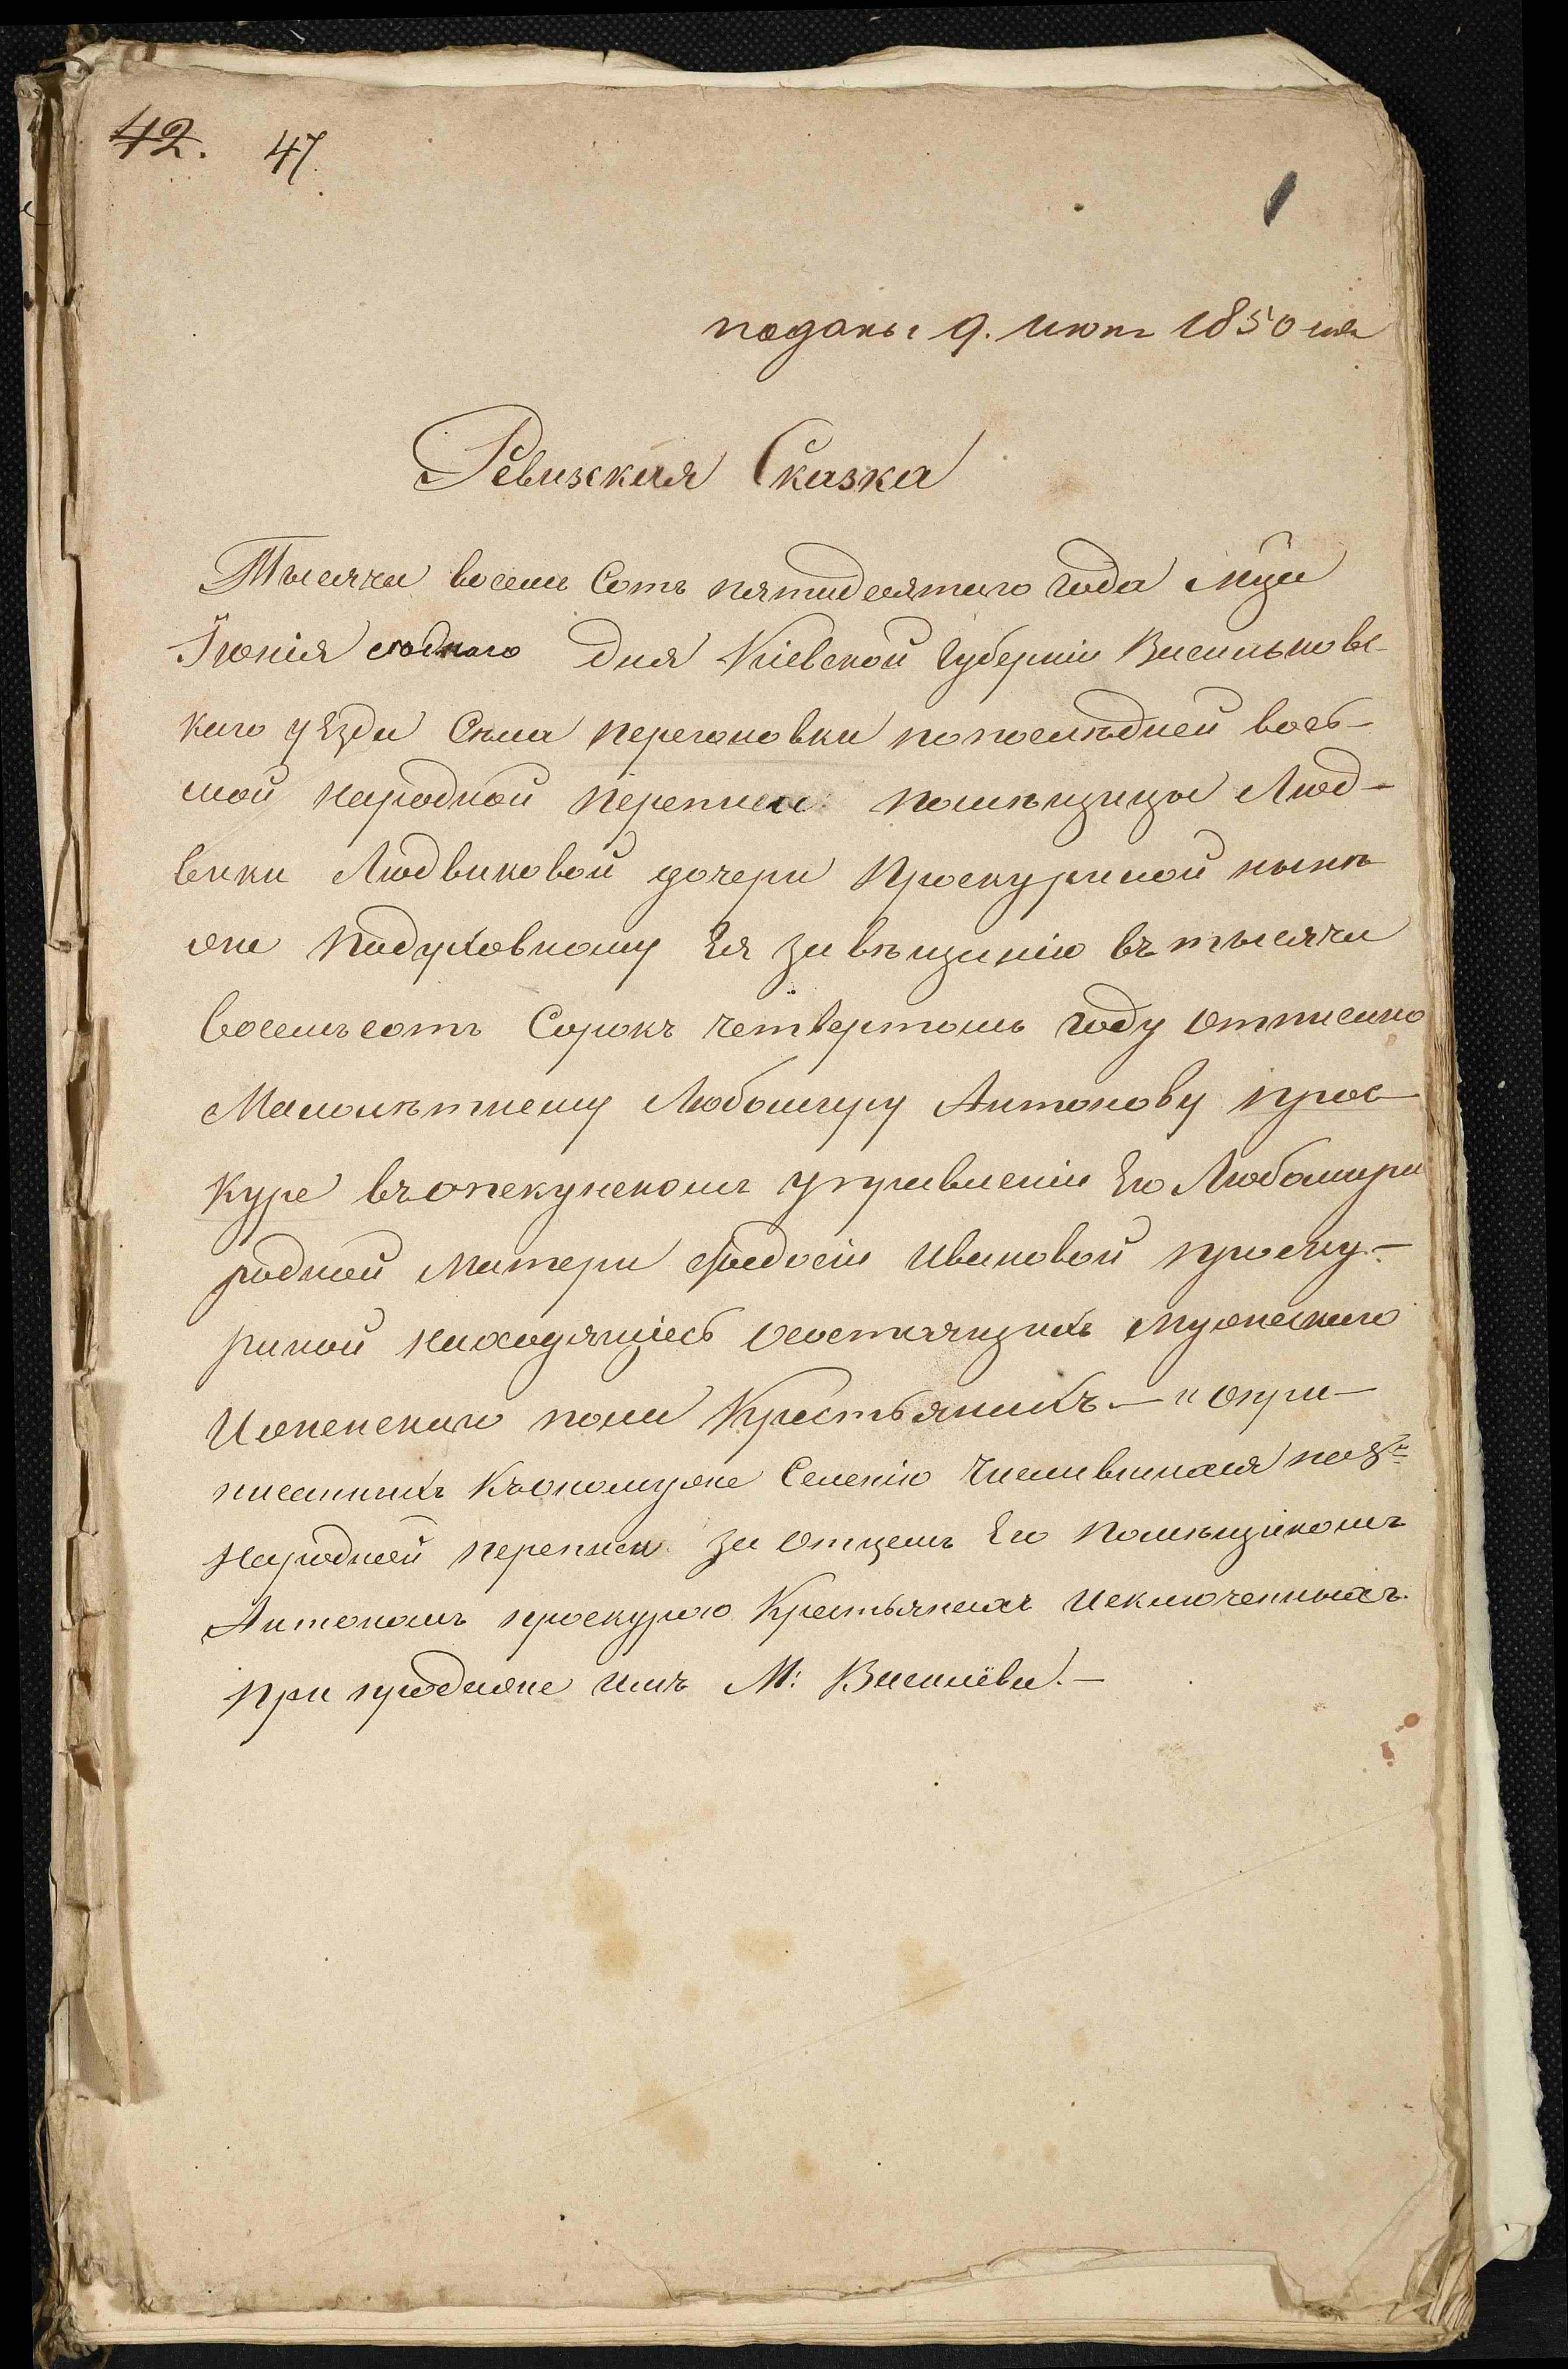 42. 47.
поданы 9. июня 1850 года
Ревизская Сказка
Тысяча восемь Сотъ пятидесятого года м͠ца
Іюнія седмаго дня Кіевской Губерніи Васильковс-
каго уѣзда Села Перегоновки попослѣдней вось-
мой народной переписи помѣщицы Люд-
вики Людвиковой дочери Проскуриной нынѣ
же подуховному Ея завѣщанію въ тысяча
восемьсотъ Сорокъ четвертомъ году отписано
Малолѣтнему Любомиру Антонову Прос-
куре въопекунскомъ управленіи Его Любомира
родной матери Федосіи Ивановой Проску-
риной находящіесь осостоящихъ мужескаго
Иженскаго пола Крестьянахъ — и опри-
писанныхъ Кьономуже Селенію Числившихся по 8й
Народной переписи за отцемъ Его помѣщикомъ
Антономъ Проскурою Крестьянахъ Исключенныхъ
при продаже имъ М: Василёва. —